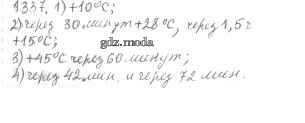 1337. 1) +10°C;
2) через 30 минут +28°C, через 1,5 ч
+15°C;
gdz.moda
3) +45°C через 60 минут;
4) через 42 мин. и через 72 мин.